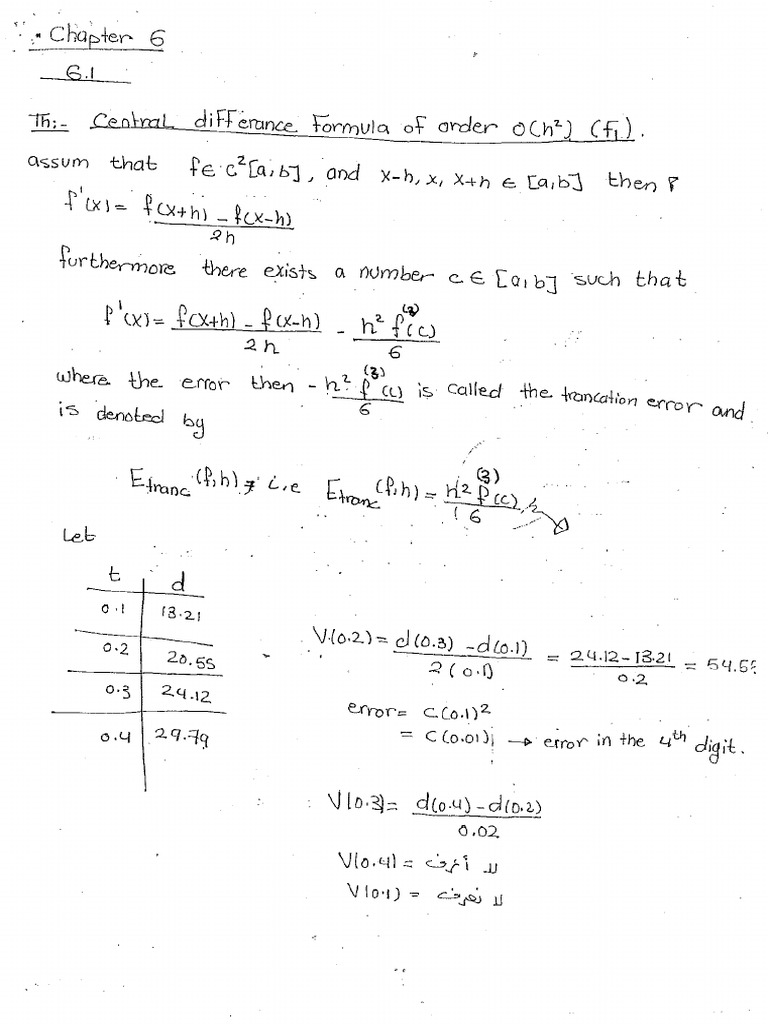 Chapter 6
6.1
Th:- Central differance Formula of order O(h²) (f₁).
assum that f ∈ C²[a,b], and x-h, x, x+h ∈ [a,b] then
f'(x) = f(x+h) - f(x-h) / 2h
furthermore there exists a number c ∈ [a,b] such that
f'(x) = f(x+h) - f(x-h) / 2h - h² f⁽³⁾(c) / 6
where the error then - h² f⁽³⁾(c) / 6 is called the troncation error and
is denoted by
E_tranc (f,h) , i,e E_tranc (f,h) = h² f⁽³⁾(c) / 6
Let
t d
0.1 13.21
0.2 20.55
0.3 24.12
0.4 29.79
V(0.2) = d(0.3) - d(0.1) / 2(0.1) = 24.12 - 13.21 / 0.2 = 54.55
error = C(0.1)²
= C(0.01) → error in the 4th digit.
V(0.3) = d(0.4) - d(0.2) / 0.02
V(0.4) = لا أعرف
V(0.1) = لا نعرف